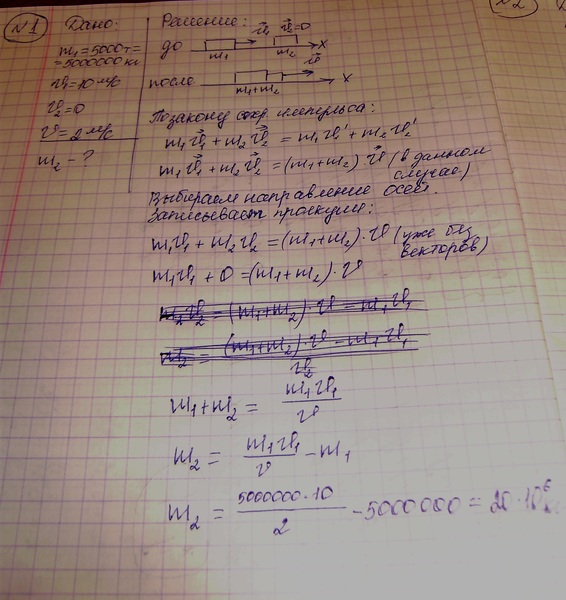 №1 Дано:
m₁=5000т=
=5000000кг
v₁=10 м/с
v₂=0
v=2 м/с
m₂ - ?
Решение:
до m₁ v₁ m₂ v₂=0 x
после m₁+m₂ v x
По закону сохр. импульса:
m₁v₁ + m₂v₂ = m₁v₁' + m₂v₂'
m₁v₁ + m₂v₂ = (m₁+m₂)·v (в данном
случае)
Выбираем направление осей.
Записывает проекции:
m₁v₁ + m₂v₂ = (m₁+m₂)·v (уже без
векторов)
m₁v₁ + 0 = (m₁+m₂)·v
m₂v₂ = (m₁+m₂)·v - m₁v₁
m₂ = (m₁+m₂)·v - m₁v₁
v₂
m₁+m₂ = m₁v₁
v
m₂ = m₁v₁ - m₁
v
m₂ = 5000000·10 - 5000000 = 20·10⁶
2
№2